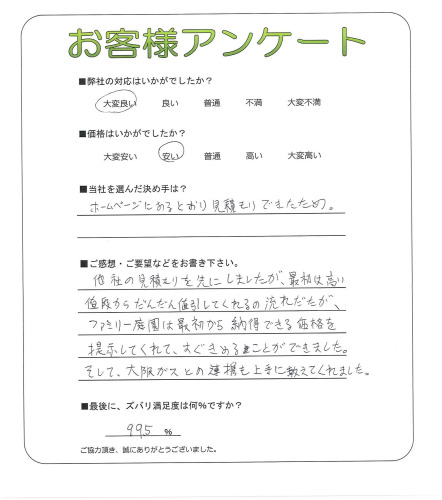 お客様アンケート
■弊社の対応はいかがでしたか？
大変良い 良い 普通 不満 大変不満
■価格はいかがでしたか？
大変安い 安い 普通 高い 大変高い
■当社を選んだ決め手は？
ホームページにあるとおり見積もりできたため。
■ご感想・ご要望などをお書き下さい。
他社の見積もりを先にしましたが、最初は高い
値段からだんだん値引してくれるの流れだが、
ファミリー庭園は最初から納得できる価格を
提示してくれて、すぐきめることができました。
そして、大阪ガスとの連携も上手に教えてくれました。
■最後に、ズバリ満足度は何%ですか？
99.5 %
ご協力頂き、誠にありがとうございました。